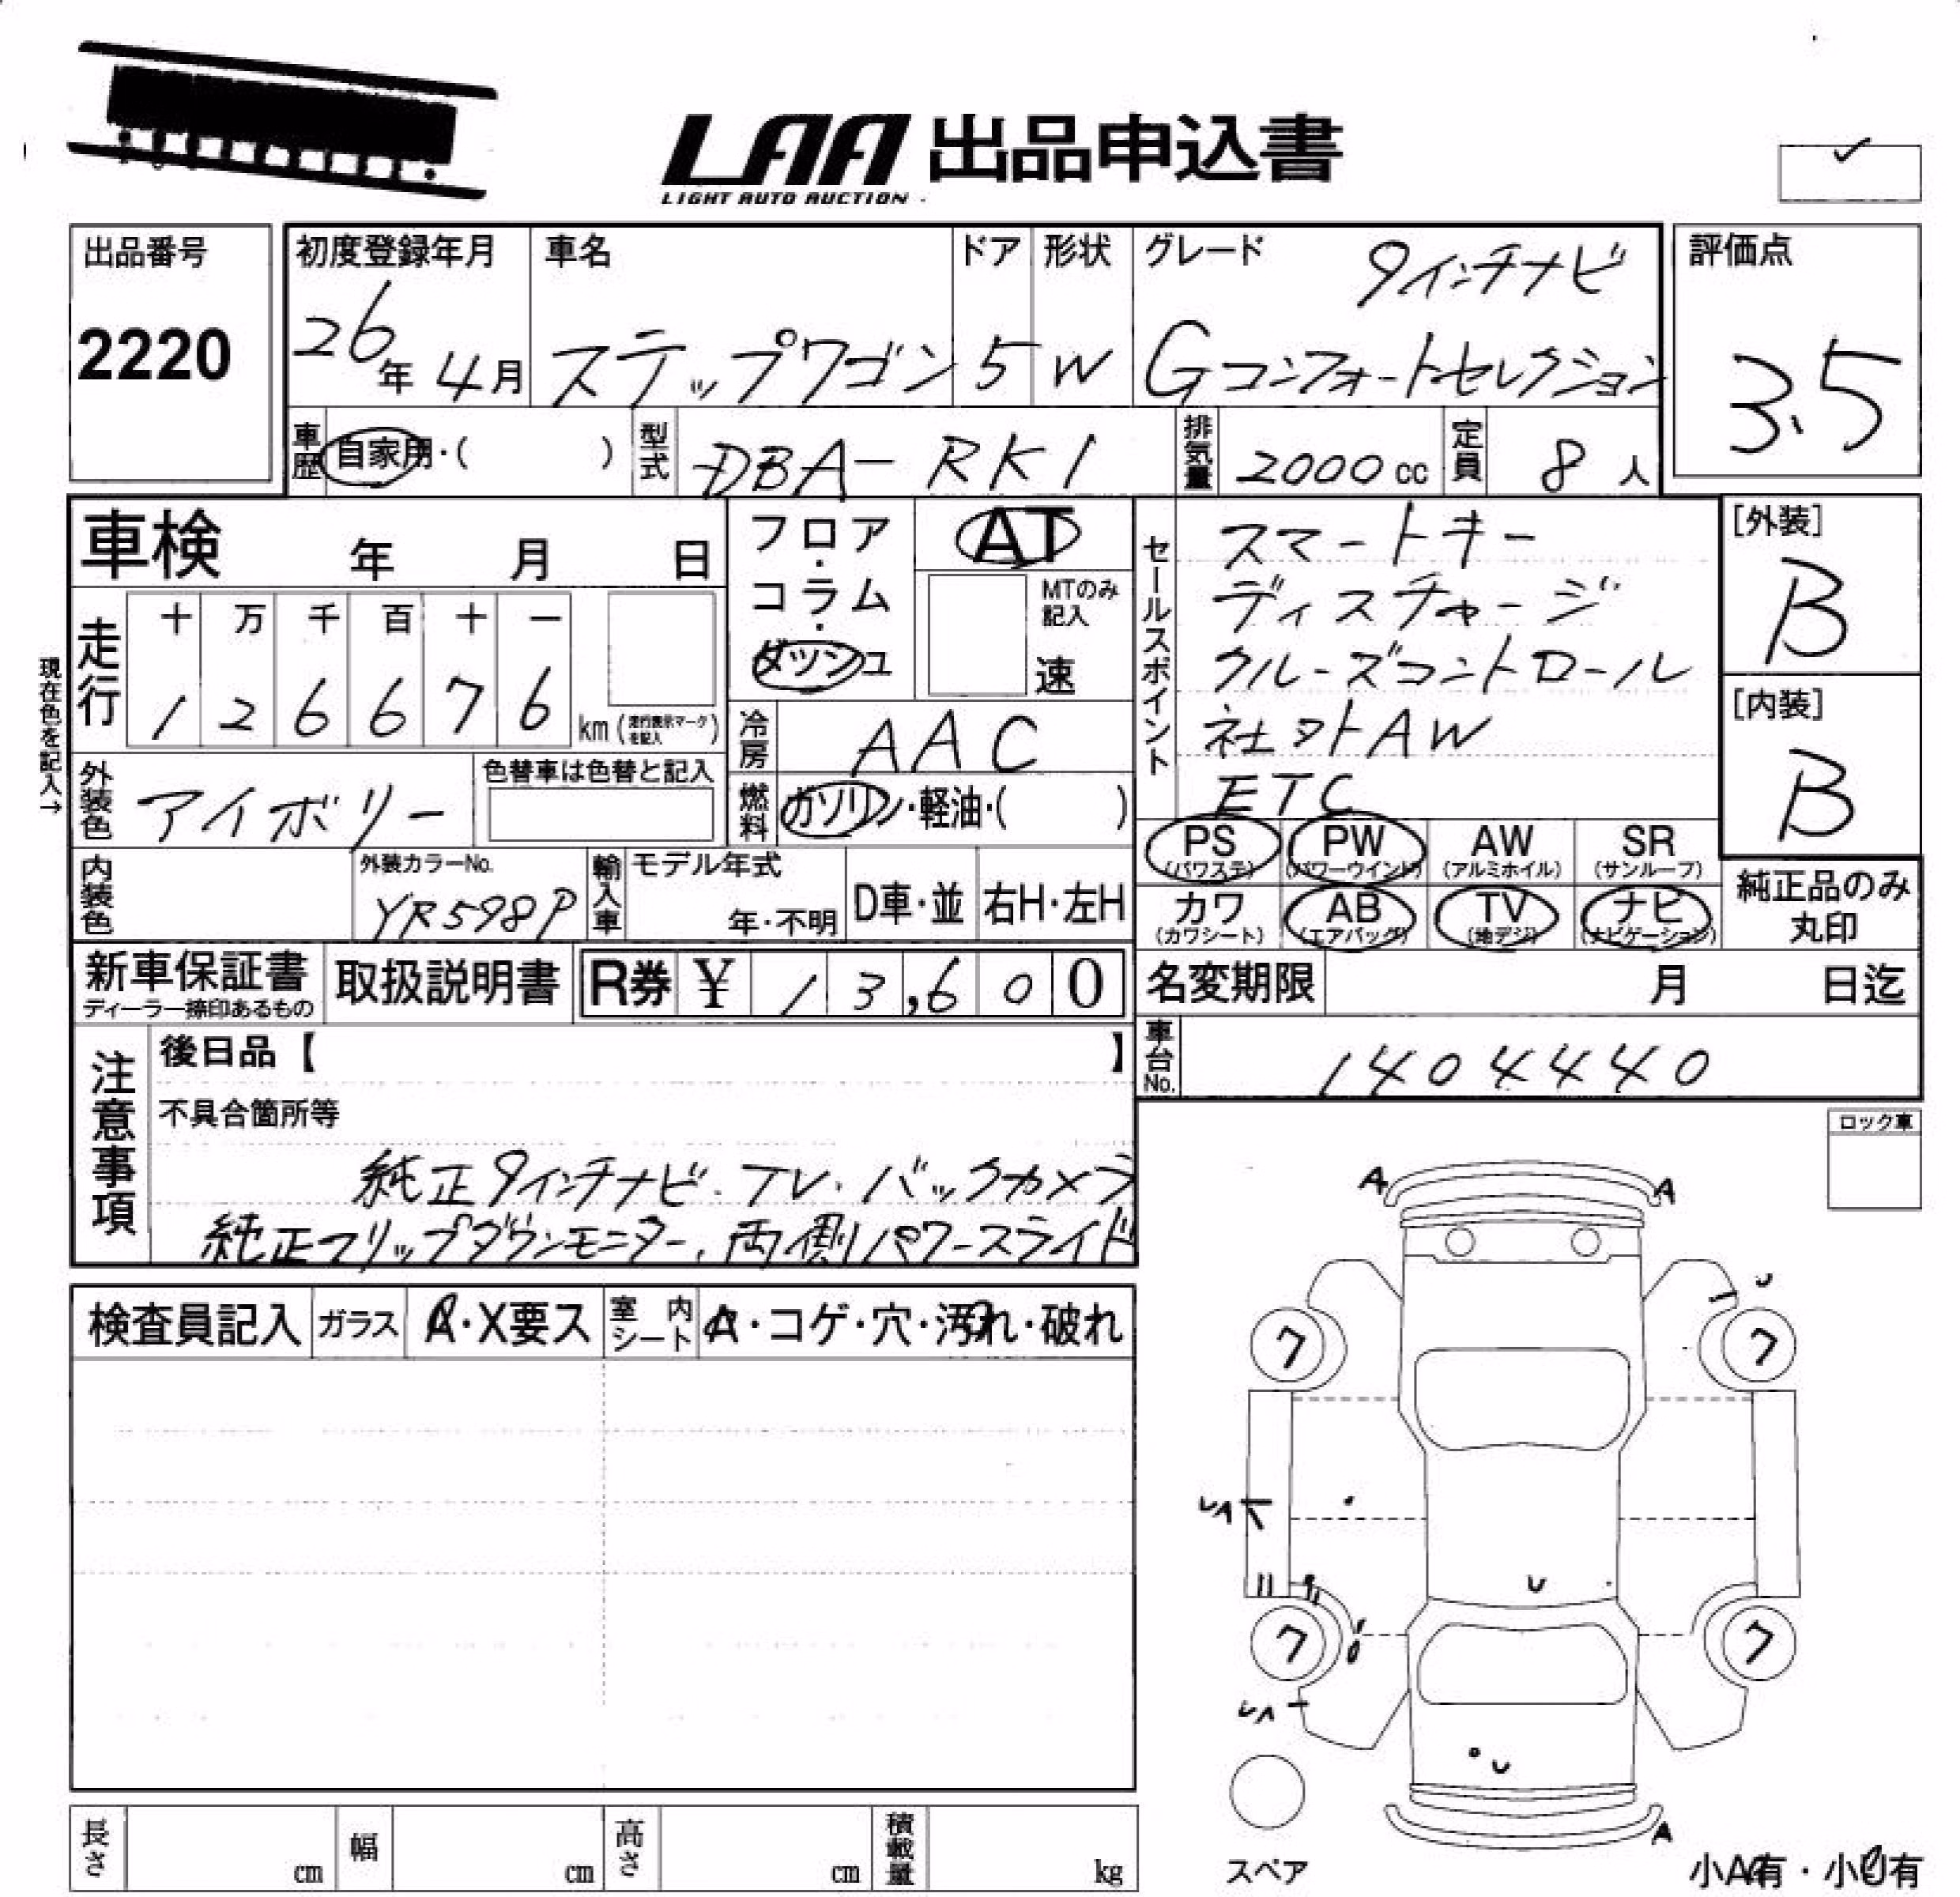 LAA 出品申込書
LIGHT AUTO AUCTION
出品番号
2220
初度登録年月
26年 4月
車名
ステップワゴン
ドア
5
形状
W
グレード
9インチナビ
Gコンフォートセレクション
評価点
3.5
車歴 自家用・( )
型式 DBA-RK1
排気量 2000cc
定員 8人
車検 年 月 日
フロア・コラム・ダッシュ
AT
MTのみ記入
速
セールスポイント
スマートキー
ディスチャージ
クルーズコントロール
社外AW
ETC
[外装]
B
[内装]
B
現在色を記入→
走行
十 万 千 百 十 一
1 2 6 6 7 6 km (走行表示マークを記入)
冷房 AAC
外装色 アイボリー
色替車は色替と記入
燃料 ガソリン・軽油・( )
PS (パワステ)
PW (パワーウインド)
AW (アルミホイル)
SR (サンルーフ)
内装色
外装カラーNo.
YR598P
輸入車
モデル年式
年・不明
D車・並
右H・左H
カワ (カワシート)
AB (エアバッグ)
TV (地デジ)
ナビ (ナビゲーション)
純正品のみ
丸印
新車保証書
ディーラー捺印あるもの
取扱説明書
R券 ¥ 13,600
名変期限 月 日迄
車台No. 1404440
注意事項
後日品【 】
不具合箇所等
純正9インチナビ.TV.バックカメラ
純正フリップダウンモニター、両側パワースライド
ロック車
A A
検査員記入
ガラス
A・X要ス
室内シート
A・コゲ・穴・汚れ・破れ
ワ ワ
ワ ワ
A
スペア
長さ cm
幅 cm
高さ cm
積載量 kg
小A有・小U有